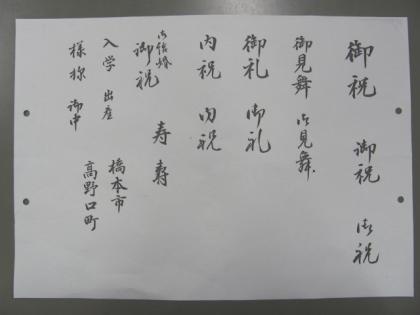 御祝 御祝 御祝
御見舞 御見舞
御礼 御礼
内祝 内祝
御結婚
御祝 寿 寿
入学 出産
橋本市
様 様 御中
高野口町